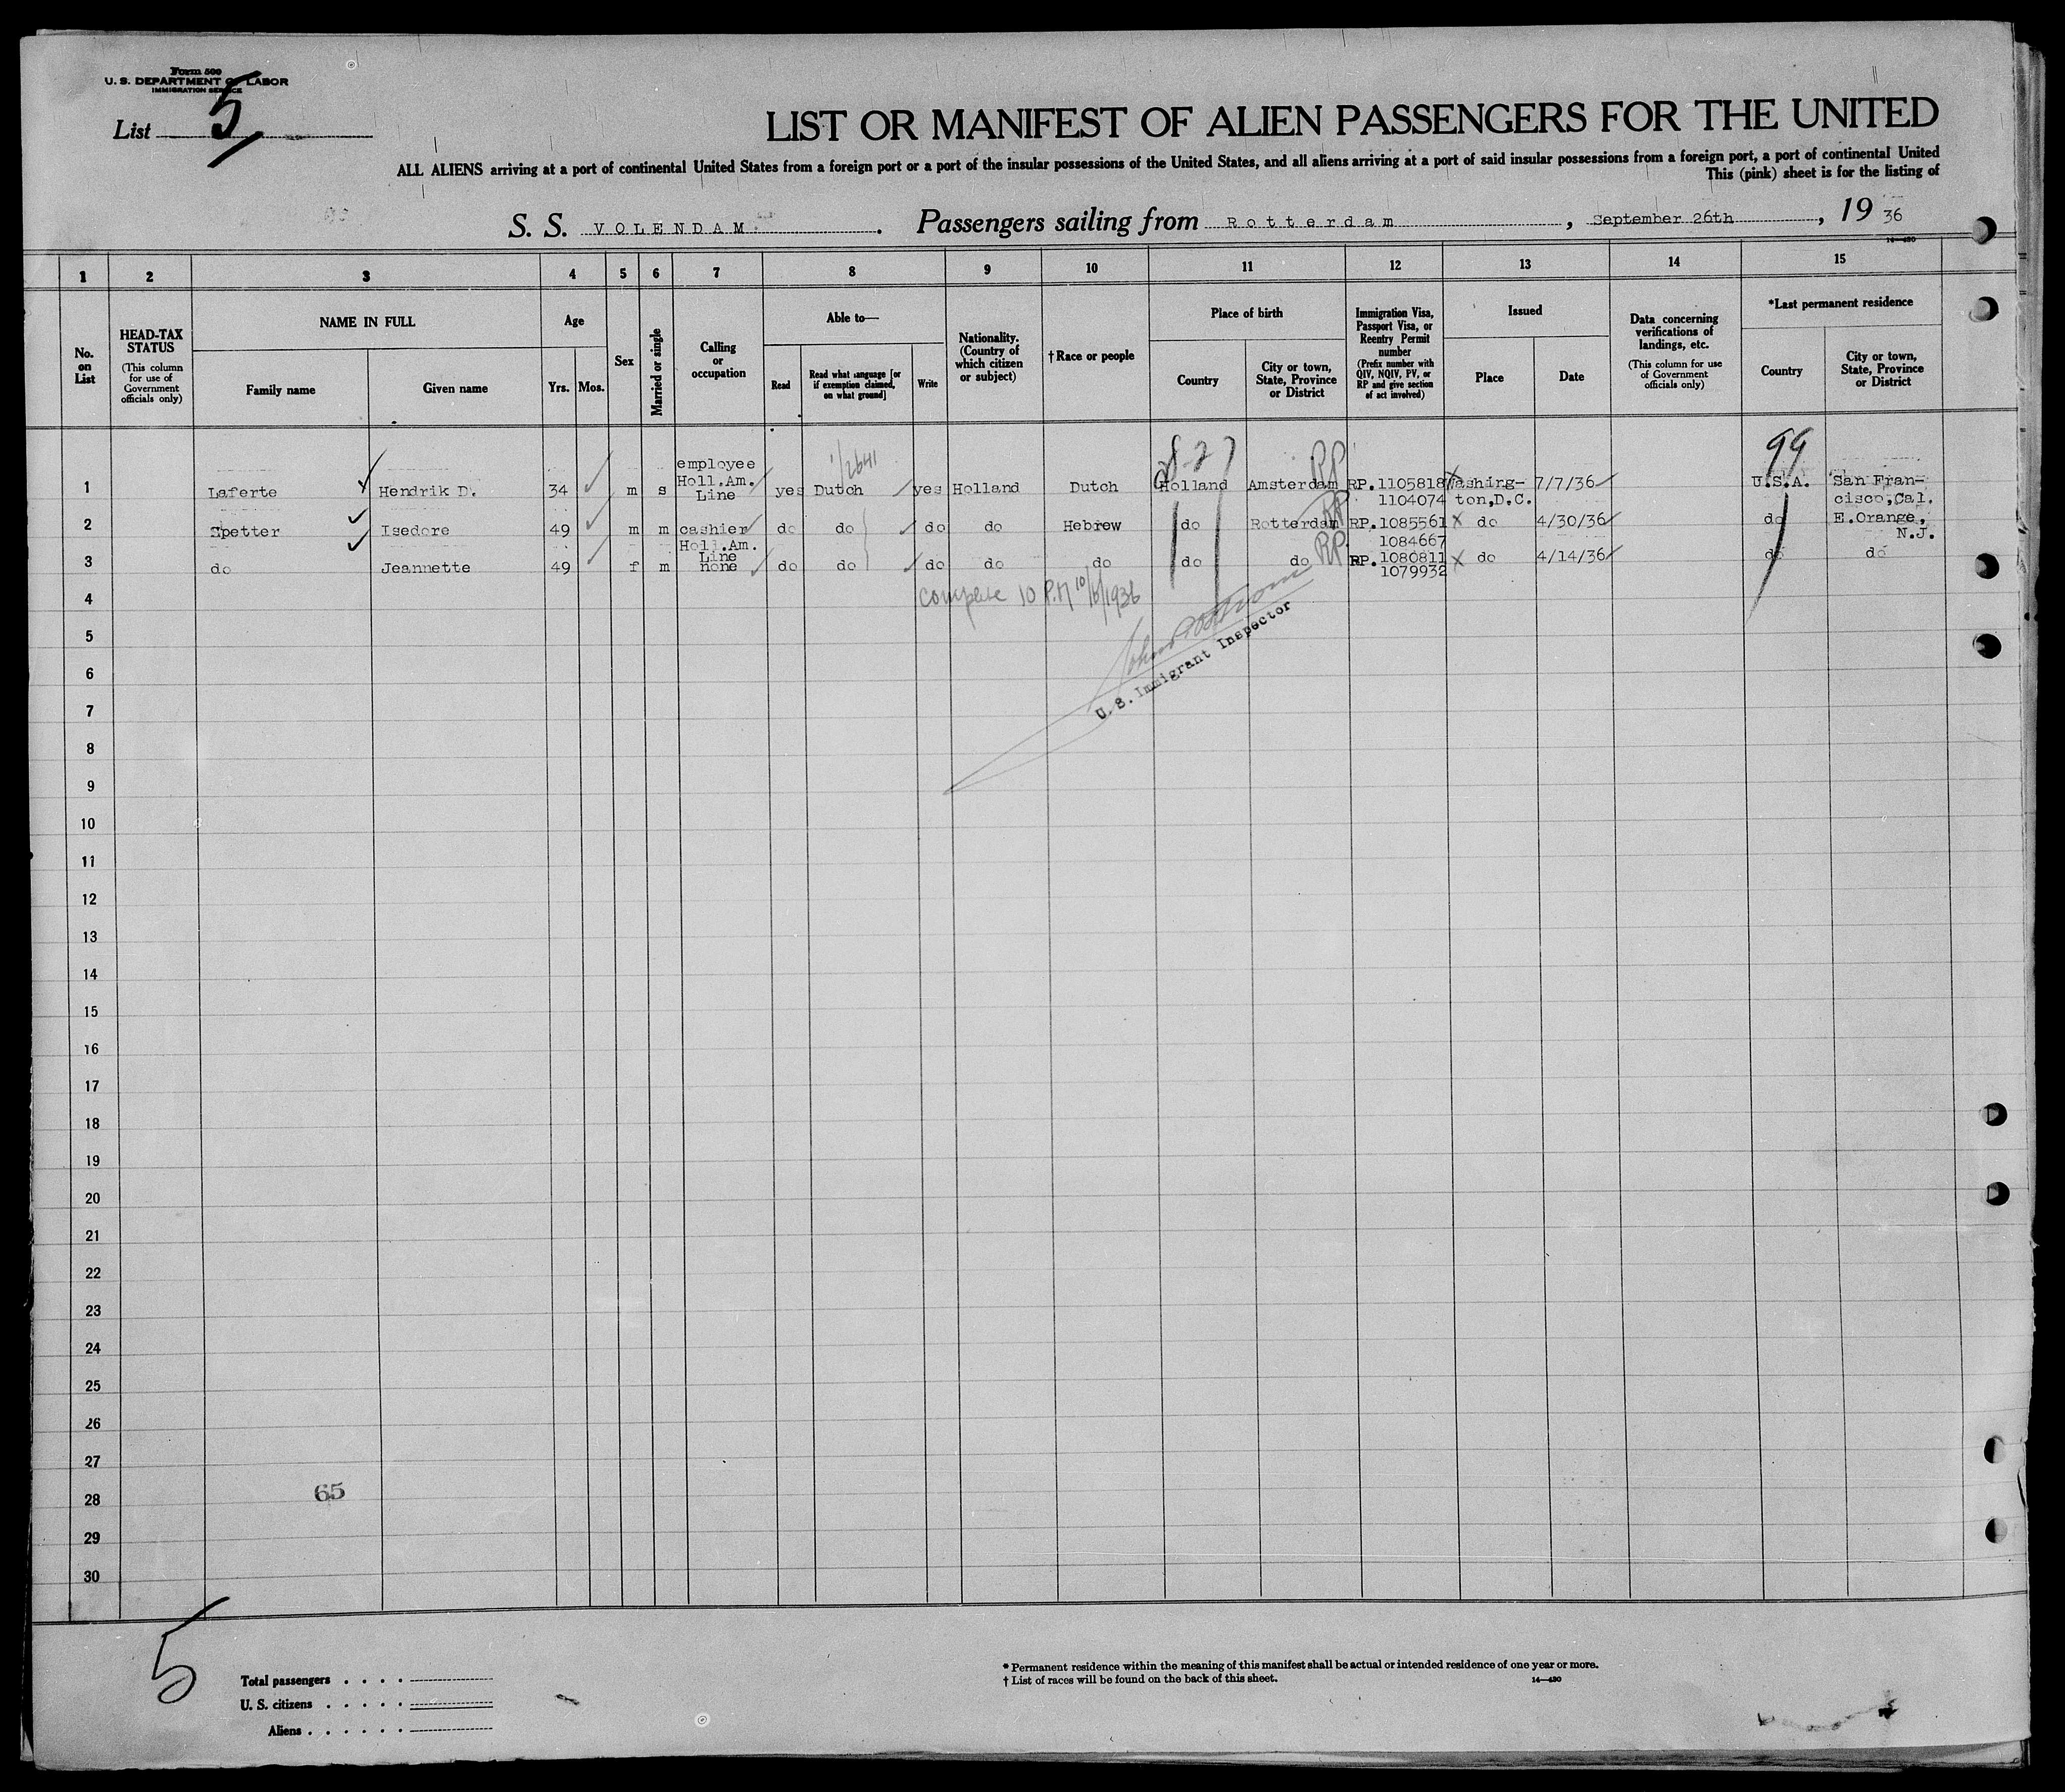 Form 500
U. S. DEPARTMENT OF LABOR
IMMIGRATION SERVICE
List 5
LIST OR MANIFEST OF ALIEN PASSENGERS FOR THE UNITED
ALL ALIENS arriving at a port of continental United States from a foreign port or a port of the insular possessions of the United States, and all aliens arriving at a port of said insular possessions from a foreign port, a port of continental United
This (pink) sheet is for the listing of
S. S. VOLENDAM. Passengers sailing from Rotterdam, September 26th, 19 36
14—430
1 2 3 4 5 6 7 8 9 10 11 12 13 14 15
No. on List
HEAD-TAX STATUS
(This column for use of Government officials only)
NAME IN FULL
Family name
Given name
Age
Yrs. Mos.
Sex
Married or single
Calling or occupation
Able to—
Read
Read what language [or if exemption claimed, on what ground]
Write
Nationality. (Country of which citizen or subject)
†Race or people
Place of birth
Country
City or town, State, Province or District
Immigration Visa, Passport Visa, or Reentry Permit number
(Prefix number with QIV, NQIV, PV, or RP and give section of act involved)
Issued
Place
Date
Data concerning verifications of landings, etc.
(This column for use of Government officials only)
*Last permanent residence
Country
City or town, State, Province or District
99
1/2641
RP
1 Laferte Hendrik D. 34 m s employee Holl.Am. Line yes Dutch yes Holland Dutch Holland Amsterdam RP.1105818 1104074 Washington,D.C. 7/7/36 U.S.A. San Francisco,Cal.
RP
2 Spetter Isedore 49 m m cashier Holl.Am. Line do do do do Hebrew do Rotterdam RP.1085561 1084667 do 4/30/36 do E.Orange, N.J.
RP
3 do Jeannette 49 f m none do do do do do do do RP.1080811 1079932 do 4/14/36 do do
4
complete 10 P.M 10/6/1936
5
U. S. Immigrant Inspector
6
7
8
9
10
11
12
13
14
15
16
17
18
19
20
21
22
23
24
25
26
27
65
28
29
30
5
Total passengers
U. S. citizens
Aliens
* Permanent residence within the meaning of this manifest shall be actual or intended residence of one year or more.
† List of races will be found on the back of this sheet.
14—430